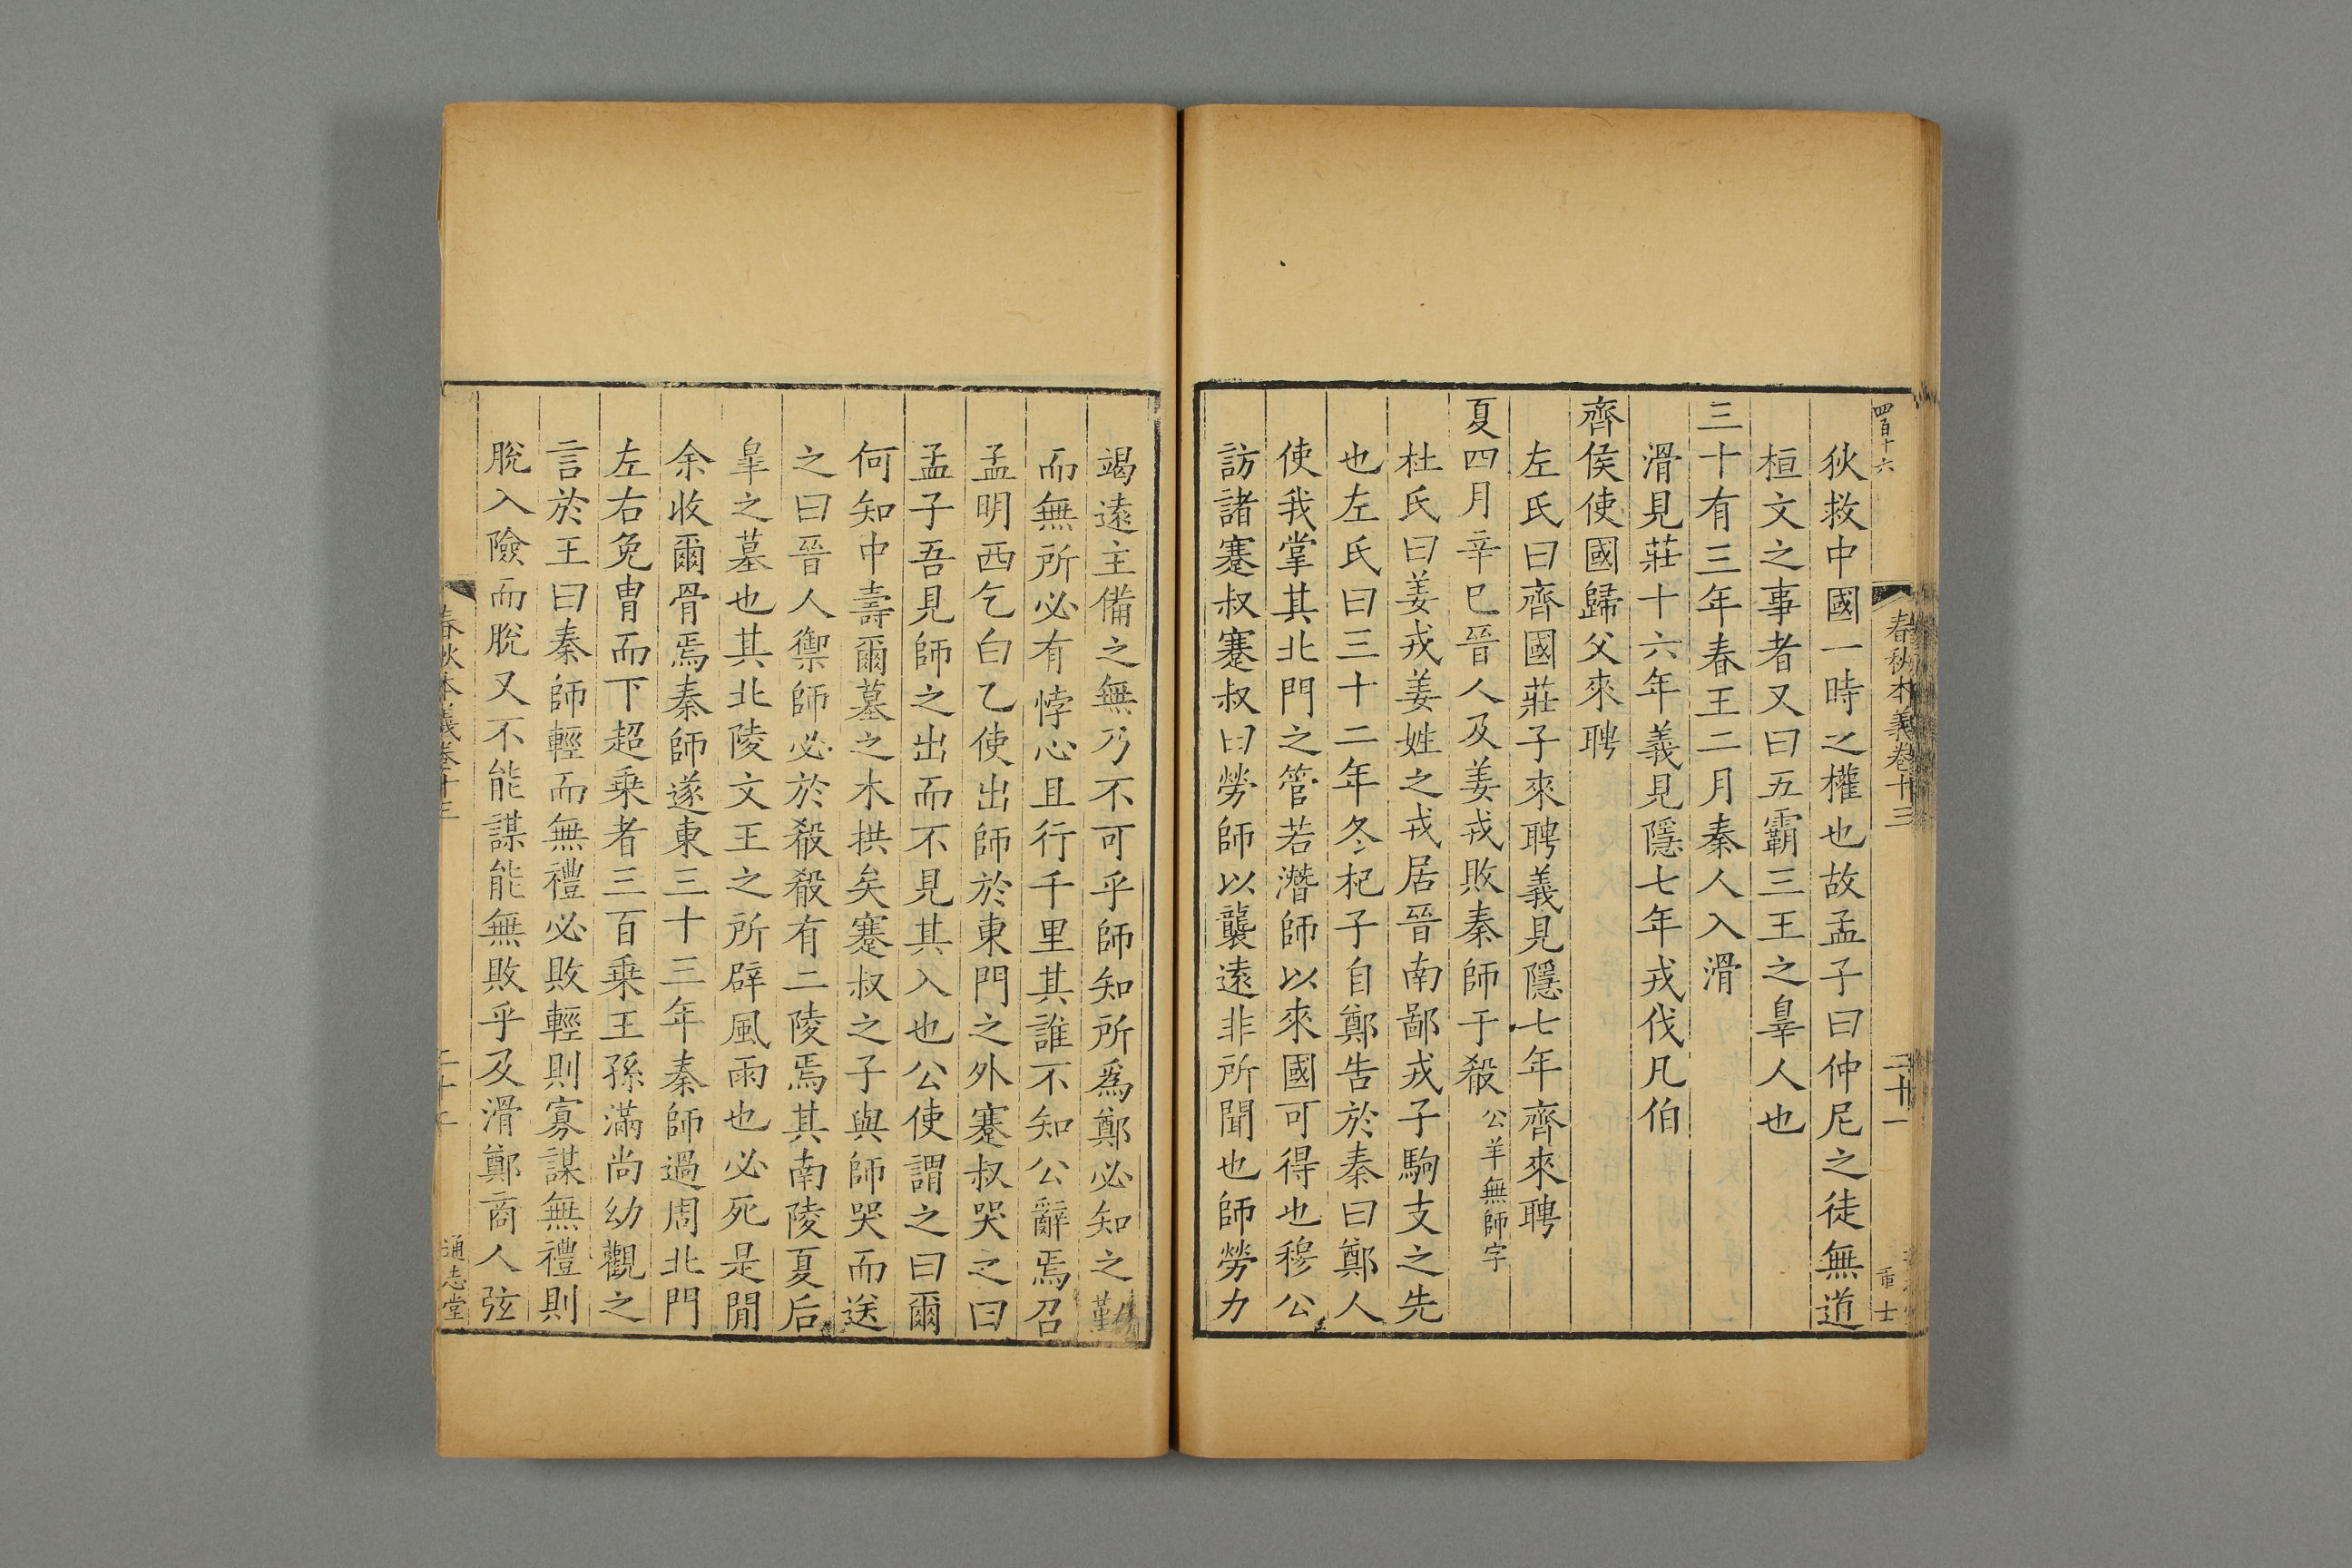 四百十六
春秋本義卷十三
二十一
狄救中國一時之權也故孟子曰仲尼之徒無道
桓文之事者又曰五霸三王之辠人也
三十有三年春王二月秦人入滑
滑見莊十六年義見隱七年戎伐凡伯
齊侯使國歸父來聘
左氏曰齊國莊子來聘義見隱七年齊來聘
夏四月辛巳晉人及姜戎敗秦師于殽公羊無師字
杜氏曰姜戎姜姓之戎居晉南鄙戎子駒支之先
也左氏曰三十二年冬杞子自鄭告於秦曰鄭人
使我掌其北門之管若潛師以來國可得也穆公
訪諸蹇叔蹇叔曰勞師以襲遠非所聞也師勞力
竭遠主備之無乃不可乎師知所爲鄭必知之勤
而無所必有悖心且行千里其誰不知公辭焉召
孟明西乞白乙使出師於東門之外蹇叔哭之曰
孟子吾見師之出而不見其入也公使謂之曰爾
何知中壽爾墓之木拱矣蹇叔之子與師哭而送
之曰晉人禦師必於殽殽有二陵焉其南陵夏后
皐之墓也其北陵文王之所辟風雨也必死是閒
余收爾骨焉秦師遂東三十三年秦師過周北門
左右免冑而下超乗者三百乗王孫滿尚幼觀之
言於王曰秦師輕而無禮必敗輕則寡謀無禮則
脫入險而脫又不能謀能無敗乎及滑鄭商人弦
春秋本義卷十三
通志堂